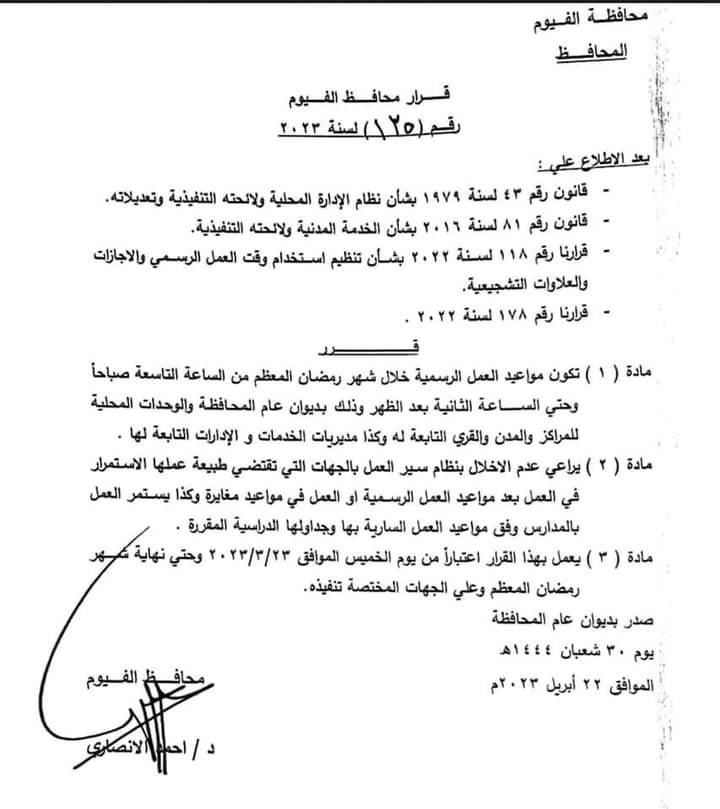 محافظة الفيوم
المحافظ
قرار محافظ الفيوم
رقم (١٢٥) لسنة ٢٠٢٣
بعد الاطلاع علي :
- قانون رقم ٤٣ لسنة ١٩٧٩ بشأن نظام الإدارة المحلية ولائحته التنفيذية وتعديلاته.
- قانون رقم ٨١ لسنة ٢٠١٦ بشأن الخدمة المدنية ولائحته التنفيذية.
- قرارنا رقم ١١٨ لسنة ٢٠٢٢ بشأن تنظيم استخدام وقت العمل الرسمي والاجازات
والعلاوات التشجيعية.
- قرارنا رقم ١٧٨ لسنة ٢٠٢٢ .
قـــرر
مادة ( ١ ) تكون مواعيد العمل الرسمية خلال شهر رمضان المعظم من الساعة التاسعة صباحاً
وحتي الساعة الثانية بعد الظهر وذلك بديوان عام المحافظة والوحدات المحلية
للمراكز والمدن والقري التابعة له وكذا مديريات الخدمات و الإدارات التابعة لها .
مادة ( ٢ ) يراعي عدم الاخلال بنظام سير العمل بالجهات التي تقتضي طبيعة عملها الاستمرار
في العمل بعد مواعيد العمل الرسمية او العمل في مواعيد مغايرة وكذا يستمر العمل
بالمدارس وفق مواعيد العمل السارية بها وجداولها الدراسية المقررة .
مادة ( ٣ ) يعمل بهذا القرار اعتباراً من يوم الخميس الموافق ٢٠٢٣/٣/٢٣ وحتي نهاية شهر
رمضان المعظم وعلي الجهات المختصة تنفيذه.
صدر بديوان عام المحافظة
يوم ٣٠ شعبان ١٤٤٤هـ
الموافق ٢٢ أبريل ٢٠٢٣م
محافظ الفيوم
د / احمد الانصاري